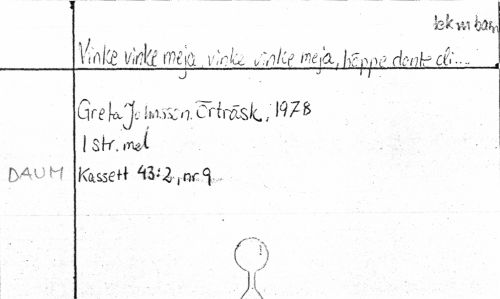 lek m barn
Vinke vinke meja, vinke vinke meja, häppe dente di...
Greta Johnsson, Örträsk, 1978
1 str. mel
DAUM Kassett 43:2, nr 9